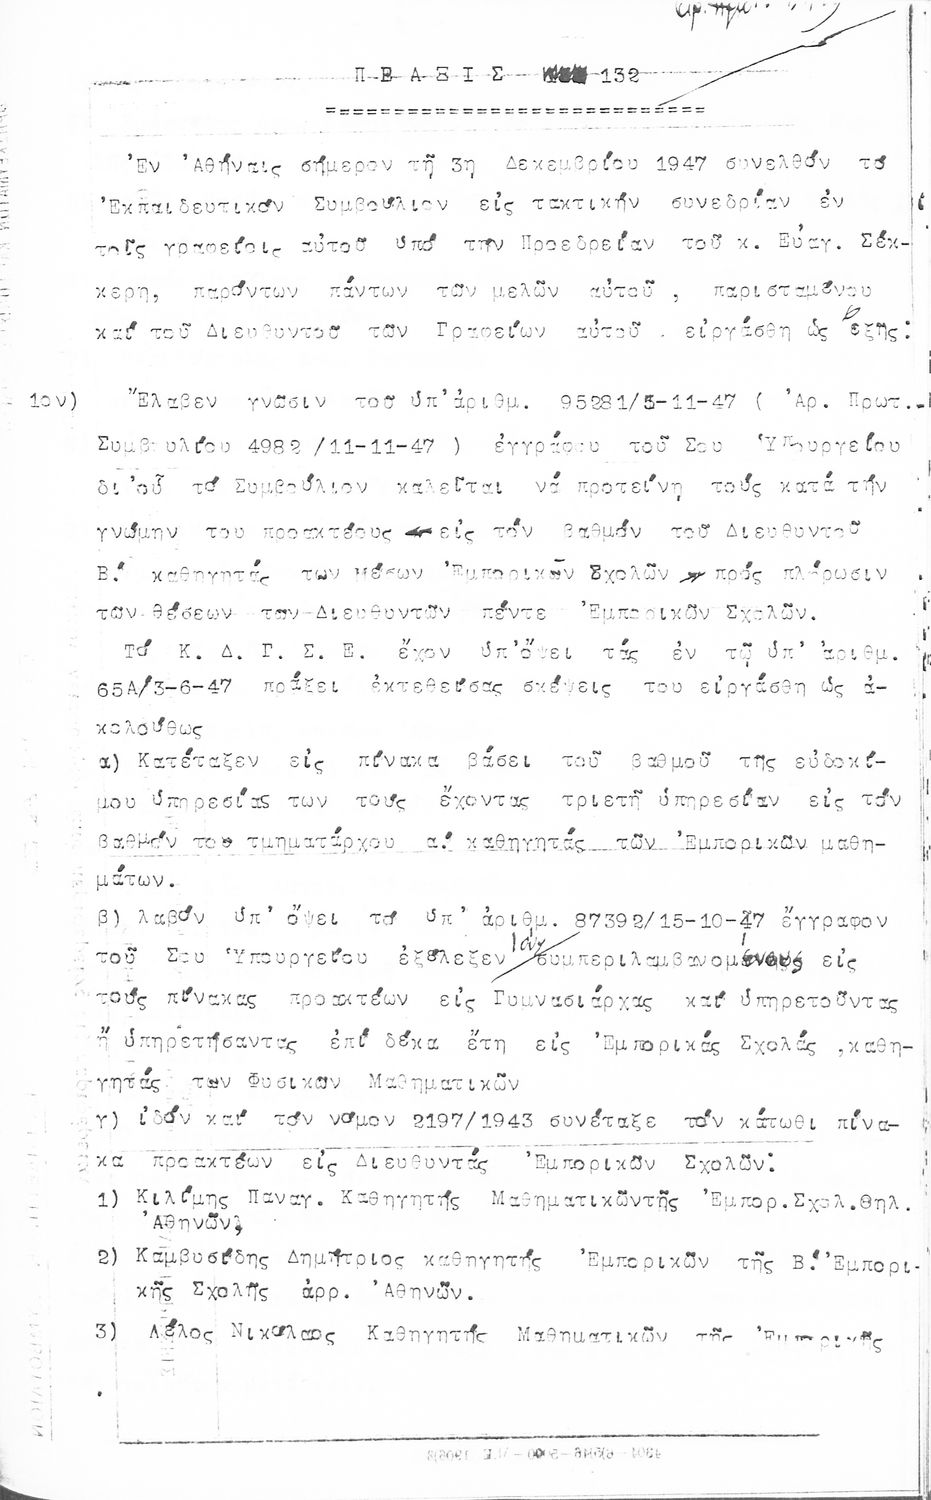 Π Ρ Α Ξ Ι Σ 132
============================
Ἐν Ἀθήναις σήμερον τῇ 3η Δεκεμβρίου 1947 συνελθόν τό
Ἐκπαιδευτικόν Συμβούλιον εἰς τακτικήν συνεδρίαν ἐν
τοῖς γραφείοις αὐτοῦ ὑπό την Προεδρείαν τοῦ κ. Εὐαγ. Σέκ-
κερη, παρόντων πάντων των μελῶν αὐτοῦ , παρισταμένου
καί τοῦ Διευθυντοῦ τῶν Γραφείων αὐτοῦ . εἰργάσθη ὡς ἑξῆς:
1ον) Ἔλαβεν γνῶσιν τοῦ ὑπ' ἀριθμ. 95281/5-11-47 ( Ἀρ. Πρωτ.
Συμβουλίου 4982 /11-11-47 ) ἐγγράφου τοῦ Σου Ὑπουργείου
δι 'οὗ τό Συμβούλιον καλεῖται νά προτείνη τούς κατά τήν
γνώμην του προακτέους εἰς τόν βαθμόν τοῦ Διευθυντοῦ
Β.' καθηγητάς των Μέσων Ἐμπορικῶν Σχολῶν πρός πλήρωσιν
τῶν θέσεων τῶν Διευθυντῶν πέντε Ἐμπορικῶν Σχολῶν.
Τό Κ. Δ. Γ. Σ. Ε. ἔχον ὑπ' ὄψει τάς ἐν τῷ ὑπ' ἀριθμ.
65Α/3-6-47 πράξει ἐκτεθείσας σκέψεις του εἰργάσθη ὡς ἀ-
κολούθως
α) Κατέταξεν εἰς πίνακα βάσει τοῦ βαθμοῦ τῆς εὐδοκί-
μου ὑπηρεσίας των τους ἔχοντας τριετῆ ὑπηρεσίαν εἰς τόν
βαθμόν του τμηματάρχου α.' καθηγητάς τῶν Ἐμπορικῶν μαθη-
μάτων.
β) λαβόν ὑπ' ὄψει τό ὑπ' ἀριθμ. 87392/15-10-47 ἔγγραφον
τοῦ Σου Ὑπουργείου ἐξέλεξεν συμπεριλαμβανομένους εἰς
τούς πίνακας προακτέων εἰς Γυμνασιάρχας καί ὑπηρετοῦντας
ἤ ὑπηρετήσαντας ἐπί δέκα ἔτη εἰς Ἐμπορικάς Σχολάς ,καθη-
γητάς των Φυσικων Μαθηματικῶν
γ) ἰδόν καί τόν νόμον 2197/1943 συνέταξε τόν κάτωθι πίνα-
κα προακτέων εἰς Διευθυντάς Ἐμπορικῶν Σχολῶν:
1) Κιλίμης Παναγ. Καθηγητής Μαθηματικῶντῆς Ἐμπορ.Σχολ.Θηλ.
Ἀθηνῶν,
2) Καμβυσίδης Δημήτριος καθηγητής Ἐμπορικῶν τῆς Β.' Ἐμπορι-
κῆς Σχολῆς ἀρρ. Ἀθηνῶν.
3) Λέλος Νικόλαος Καθηγητής Μαθηματικῶν τῆς Ἐμπορικῆς